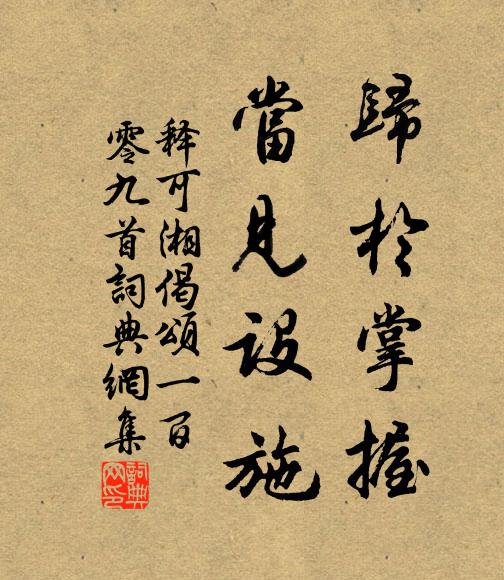 歸於掌握
當見設施
释可湘偈頌一百
零九首詞典網集
詞典
网印